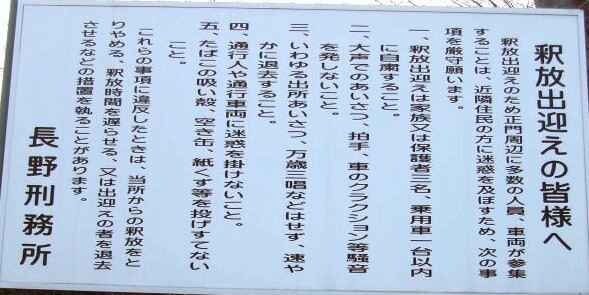 釈放出迎えの皆様へ
釈放出迎えのため正門周辺に多数の人員、車両が参集
することは、近隣住民の方に迷惑を及ぼすため、次の事
項を厳守願います。
一、釈放出迎えは家族又は保護者三名、乗用車一台以内
に自粛すること。
二、大声でのあいさつ、拍手、車のクラクション等騒音
を発しないこと。
三、いわゆる出所あいさつ、万歳三唱などはせず、速や
かに退去すること。
四、通行人や通行車両に迷惑を掛けないこと。
五、たばこの吸い殻、空き缶、紙くず等を投げすてない
こと。
これらの事項に違反したときは、当所からの釈放をと
りやめる、釈放時間を遅らせる、又は出迎えの者を退去
させるなどの措置を執ることがあります。
長野刑務所